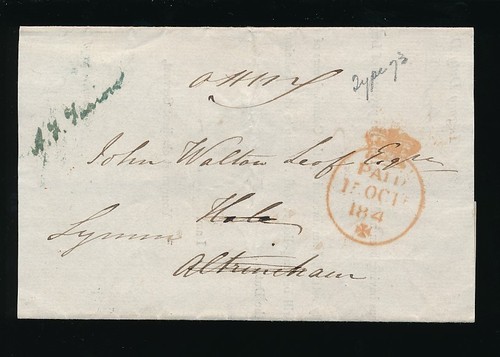 Type 93
John Walton Leaf Esqre
PAID
15 OCT
184
C
Lymm
Altrincham